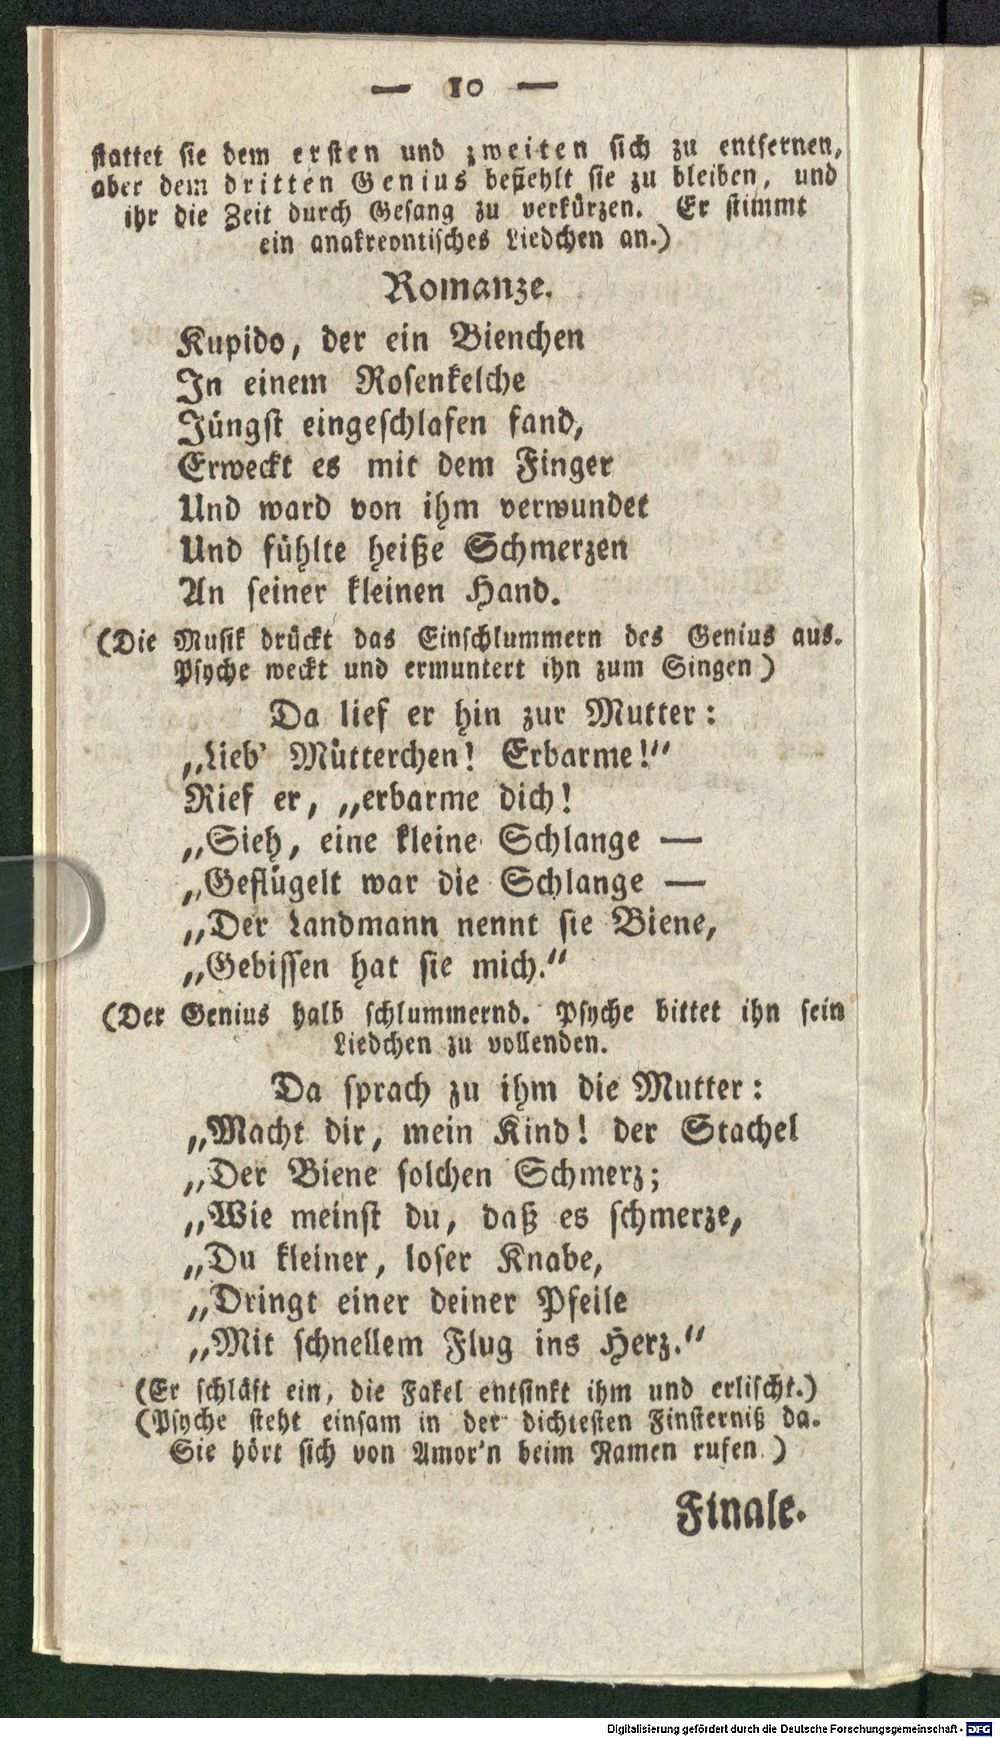 — 10 —
stattet sie dem ersten und zweiten sich zu entfernen,
aber dem dritten Genius befiehlt sie zu bleiben, und
ihr die Zeit durch Gesang zu verkürzen. Er stimmt
ein anakreontisches Liedchen an.)
Romanze.
Kupido, der ein Bienchen
In einem Rosenkelche
Jüngst eingeschlafen fand,
Erweckt es mit dem Finger
Und ward von ihm verwundet
Und fühlte heiße Schmerzen
An seiner kleinen Hand.
(Die Musik drückt das Einschlummern des Genius aus.
Psyche weckt und ermuntert ihn zum Singen)
Da lief er hin zur Mutter:
„Lieb' Mütterchen! Erbarme!“
Rief er, „erbarme dich!
„Sieh, eine kleine Schlange —
„Geflügelt war die Schlange —
„Der Landmann nennt sie Biene,
„Gebissen hat sie mich.“
(Der Genius halb schlummernd. Psyche bittet ihn sein
Liedchen zu vollenden.
Da sprach zu ihm die Mutter:
„Macht dir, mein Kind! der Stachel
„Der Biene solchen Schmerz;
„Wie meinst du, daß es schmerze,
„Du kleiner, loser Knabe,
„Dringt einer deiner Pfeile
„Mit schnellem Flug ins Herz.“
(Er schläft ein, die Fakel entsinkt ihm und erlischt.)
(Psyche steht einsam in der dichtesten Finsterniß da.
Sie hört sich von Amor'n beim Namen rufen.)
Finale.
Digitalisierung gefördert durch die Deutsche Forschungsgemeinschaft - DFG